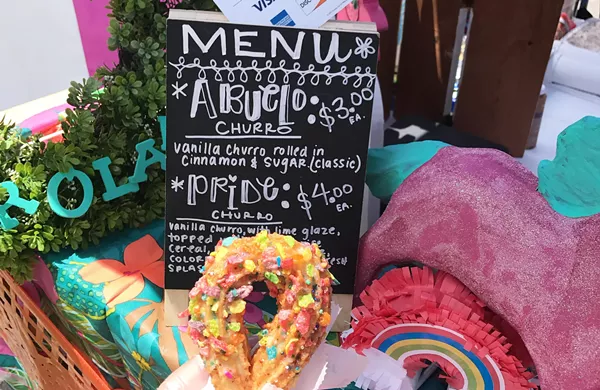 VISA
MENU
*ABUELO: $3.00
CHURRO EA.
Vanilla churro rolled in
Cinnamon & SUGAR (classic)
*PRIDE: $4.00
CHURRO EA.
Vanilla churro, with lime glaze,
topped
cereal,
COLOR
SPLAS
ROLA